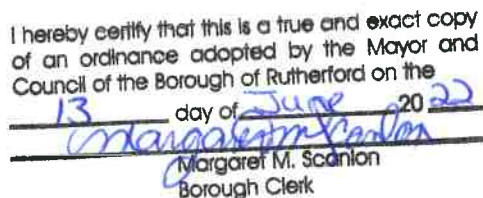 I hereby certify that this is a true and exact copy
of an ordinance adopted by the Mayor and
Council of the Borough of Rutherford on the
13 day of June 20 22
Margaret M Scanlon
Margaret M. Scanlon
Borough Clerk